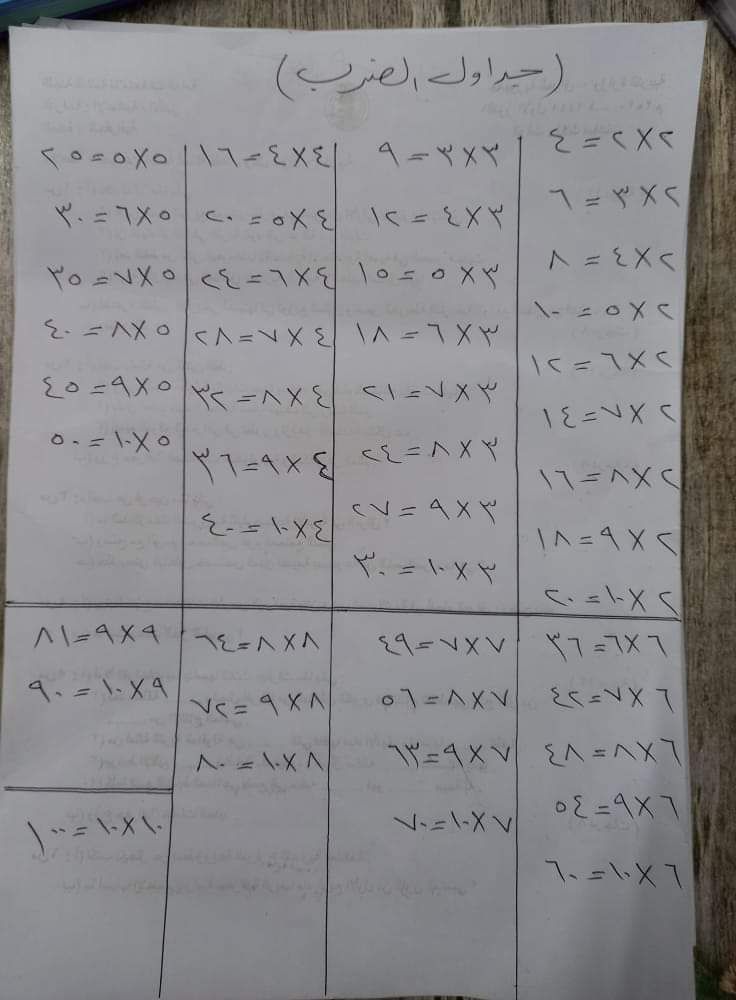 (جداول الضرب)
٢X٢=٤
٢X٣=٦
٢X٤=٨
٢X٥=١٠
٢X٦=١٢
٢X٧=١٤
٢X٨=١٦
٢X٩=١٨
٢X١٠=٢٠
٣X٣=٩
٣X٤=١٢
٣X٥=١٥
٣X٦=١٨
٣X٧=٢١
٣X٨=٢٤
٣X٩=٢٧
٣X١٠=٣٠
٤X٤=١٦
٤X٥=٢٠
٤X٦=٢٤
٤X٧=٢٨
٤X٨=٣٢
٤X٩=٣٦
٤X١٠=٤٠
٥X٥=٢٥
٥X٦=٣٠
٥X٧=٣٥
٥X٨=٤٠
٥X٩=٤٥
٥X١٠=٥٠
٦X٦=٣٦
٦X٧=٤٢
٦X٨=٤٨
٦X٩=٥٤
٦X١٠=٦٠
٧X٧=٤٩
٧X٨=٥٦
٧X٩=٦٣
٧X١٠=٧٠
٨X٨=٦٤
٨X٩=٧٢
٨X١٠=٨٠
٩X٩=٨١
٩X١٠=٩٠
١٠X١٠=١٠٠